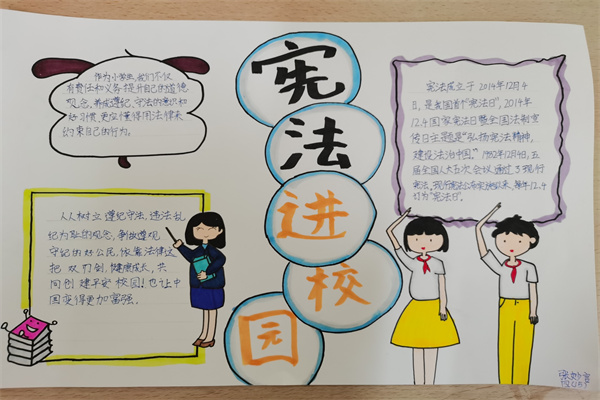 宪
法
进
校
园
作为小学生,我们不仅
有责任和义务提升自己的道德
观念,养成遵纪、守法的意识和
好习惯,更应懂得用法律来
约束自己的行为。
宪法成立于2014年12月4
日,是我国首个"宪法日"。2014年
12.4国家宪法日暨全国法制宣
传日主题是"弘扬宪法精神,
建设法治中国。"1982年12月4日,五
届全国人大五次会议通过了现行
宪法,现行宪法公布实施以来,每年12.4
订为"宪法日"。
人人树立遵纪守法,违法乱
纪为耻的观念,争做遵规
守纪的好公民,依靠法律这
把双刃剑,健康成长,共
同创建平安校园,也让中
国变得更加富强。